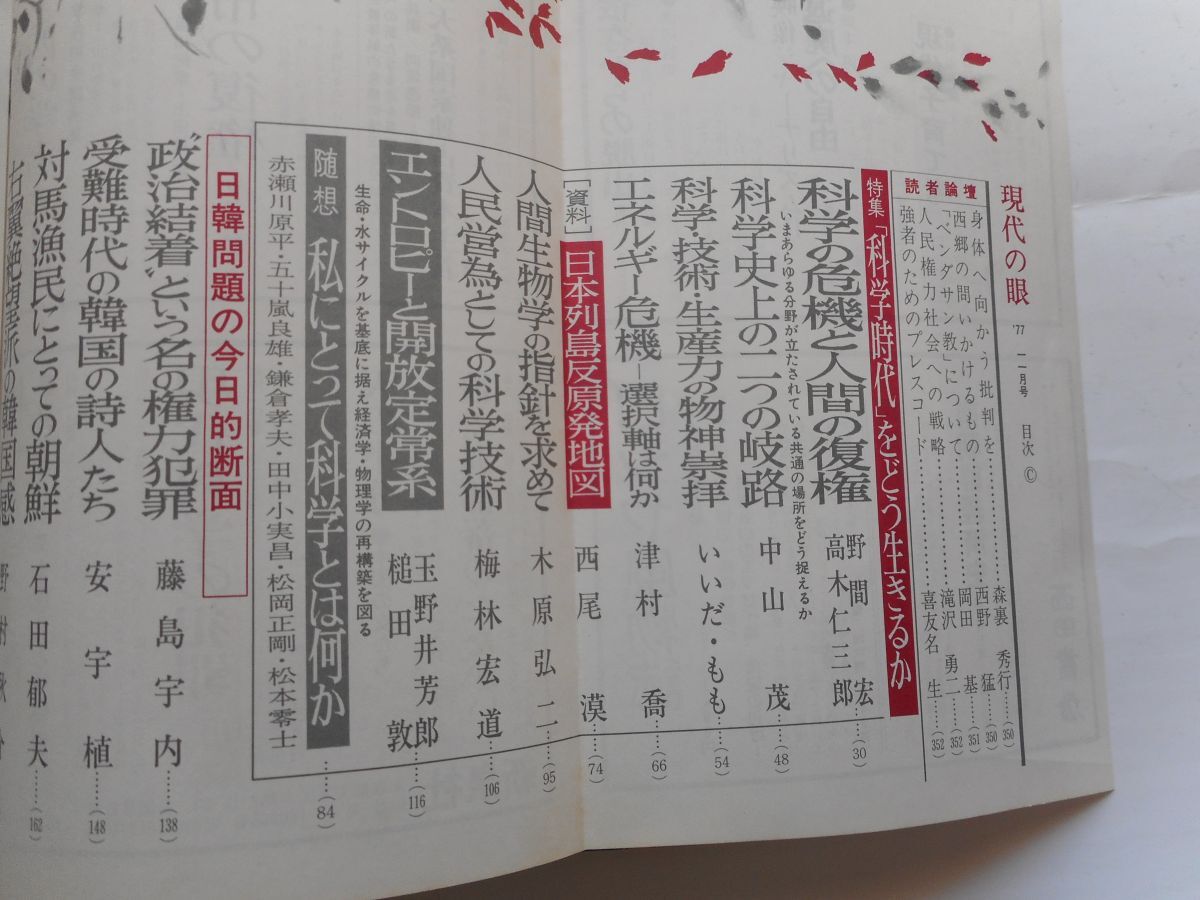 現代の眼 '77 一一月号 目次 ©
読者論壇
身体へ向かう批判を……森裏 秀行……(350)
西郷の問いかけるもの……西野 猛……(350)
「ベンダサン教」について……岡田 基……(351)
人民権力社会への戦略……滝沢 勇二……(352)
強者のためのプレスコード……喜友名 生……(352)
特集「科学時代」をどう生きるか
科学の危機と人間の復権 野間 宏 高木仁三郎……(30)
いまあらゆる分野が立たされている共通の場所をどう捉えるか
科学史上の二つの岐路 中山 茂……(48)
科学・技術・生産力の物神崇拝 いいだ・もも……(54)
エネルギー危機―選択軸は何か 津村 喬……(66)
[資料] 日本列島反原発地図 西尾 漠……(74)
人間生物学の指針を求めて 木原弘二……(95)
人民営為としての科学技術 梅林宏道……(106)
エントロピーと開放定常系 玉野井芳郎 槌田 敦……(116)
生命・水サイクルを基底に据え経済学・物理学の再構築を図る
随想 私にとって科学とは何か……(84)
赤瀬川原平・五十嵐良雄・鎌倉孝夫・田中小実昌・松岡正剛・松本零士
日韓問題の今日的断面
"政治結着"という名の権力犯罪 藤島宇内……(138)
受難時代の韓国の詩人たち 安宇植……(148)
対馬漁民にとっての朝鮮 石田郁夫……(162)